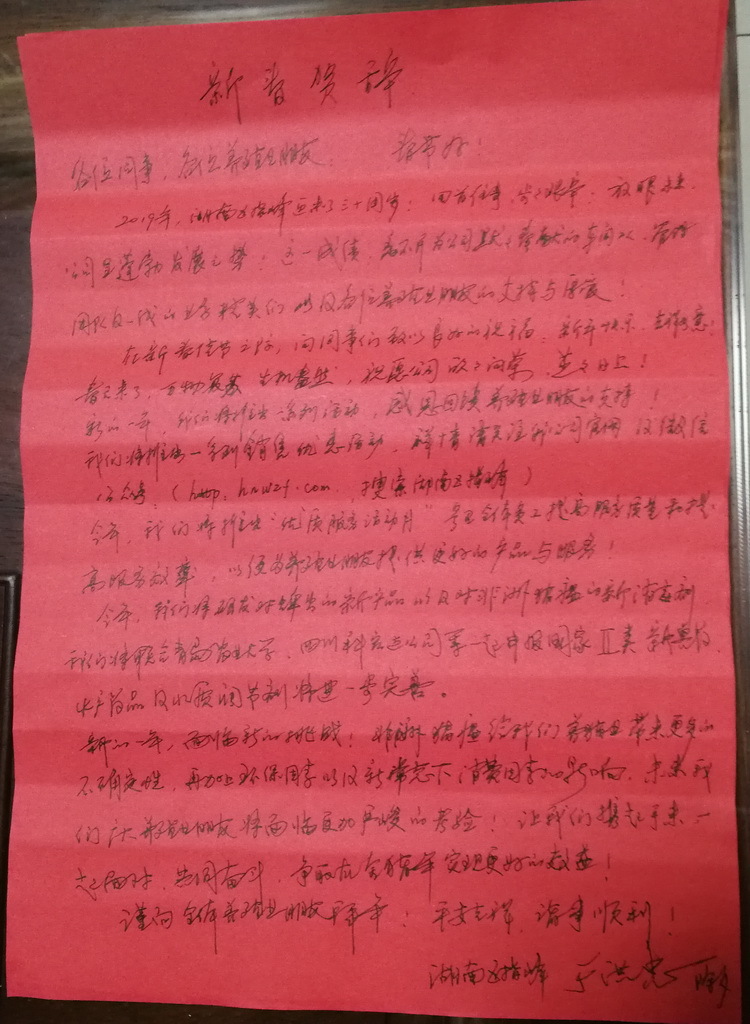 新春贺辞
各位同事,各位养殖业朋友: 春节好!
2019年,湖南五指峰迎来了三十周岁!回首往事,步步艰辛;放眼未来,
公司呈蓬勃发展之势!这一成绩,离不开为公司默默奉献的车间工、营销
团队及一线的业务精英们以及各位养殖业朋友的支持与厚爱!
在新春佳节之际,向同事们致以良好的祝福:新年快乐,吉祥如意!
春天来了,万物复苏,生机盎然,祝愿公司欣欣向荣,蒸蒸日上!
新的一年,我们将推出系列活动,感恩回馈养殖业朋友的支持!
我们将推出一系列销售优惠活动,详情请关注我公司官网及微信
公众号:(http:hnwzf.com 搜索湖南五指峰)
今年,我们将推出"优质服务活动月"号召全体员工提高服务质量和提
高服务效率,以便为养殖业朋友提供更好的产品与服务!
今年,我们将研发对蓝耳的新产品以及对非洲猪瘟的新消毒剂,
我们将联合青岛农业大学、四川科宏达公司等一起申报国家II类新兽药,
水产药品及水质调节剂将进一步完善。
新的一年,面临新的挑战!非洲猪瘟给我们养殖业带来更多的
不确定性,再加上环保因素以及新常态下消费因素的影响,未来我
们广大养殖业朋友将面临更加严峻的考验!让我们携起手来,一
起面对,共同奋斗,争取在金猪年实现更好的效益!
谨向全体养殖业朋友拜年!平安吉祥,诸事顺利!
湖南五指峰 于洪忠